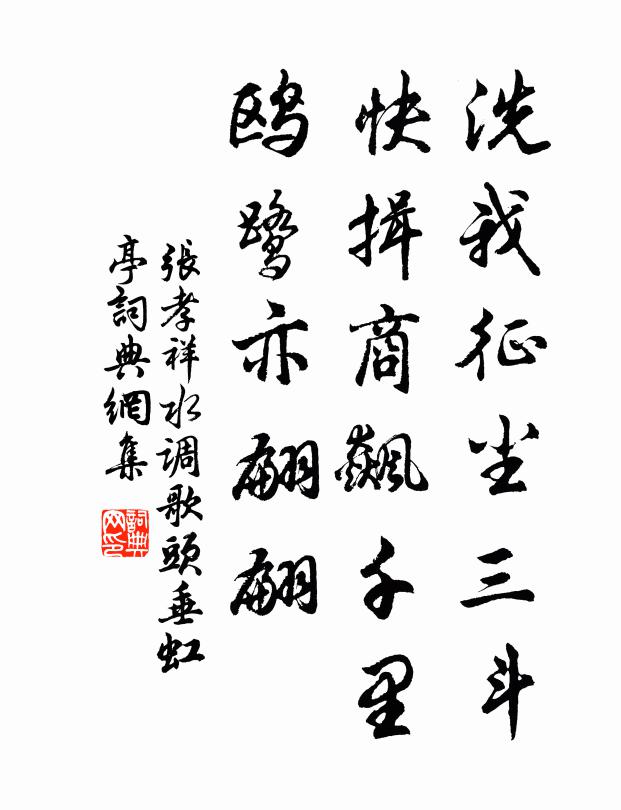 洗我征尘三斗
快揖商飙千里
鸥鹭亦翩翩
張孝祥水调歌頭垂虹
亭詞典網集
詞典
网印